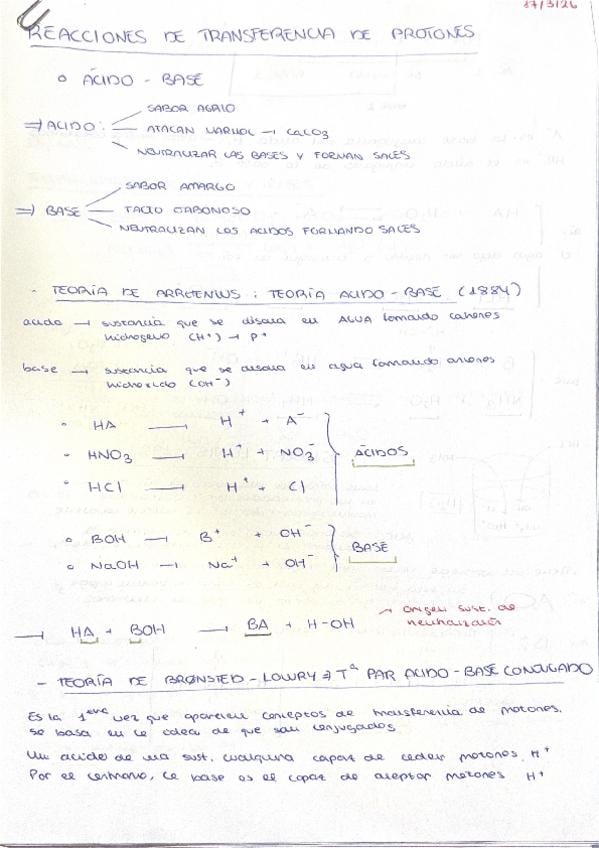 17/3/26
REACCIONES DE TRANSFERENCIA DE PROTONES
o ÁCIDO - BASE
⇒ ACIDO:
SABOR AGRIO
ATACAN MARMOL → CaCO3
NEUTRALIZAR LAS BASES Y FORMAN SALES
⇒ BASE
SABOR AMARGO
TACTO JABONOSO
NEUTRALIZAN LOS ACIDOS FORMANDO SALES
- TEORÍA DE ARRHENIUS : TEORÍA ACIDO - BASE (1884)
acido → sustancia que se disocia en AGUA formando cationes
hidrogeno (H+) → P+
base → sustancia que se disocia en agua formando aniones
hidroxido (OH-)
• HA → H+ + A-
• HNO3 → H+ + NO3-
• HCl → H+ + Cl
ÁCIDOS
• BOH → B+ + OH-
• NaOH → Na+ + OH-
BASE
→ HA + BOH → BA + H-OH
→ origen sust. de
neutralización
- TEORÍA DE BRØNSTED - LOWRY Tª PAR ACIDO - BASE CONJUGADO
Es la 1era vez que aparecen conceptos de transferencia de protones.
se basa en la idea de que son conjugados
Un acido de una sust. cualquiera capaz de ceder protones H+
Por el contrario, la base es el capaz de aceptar protones H+